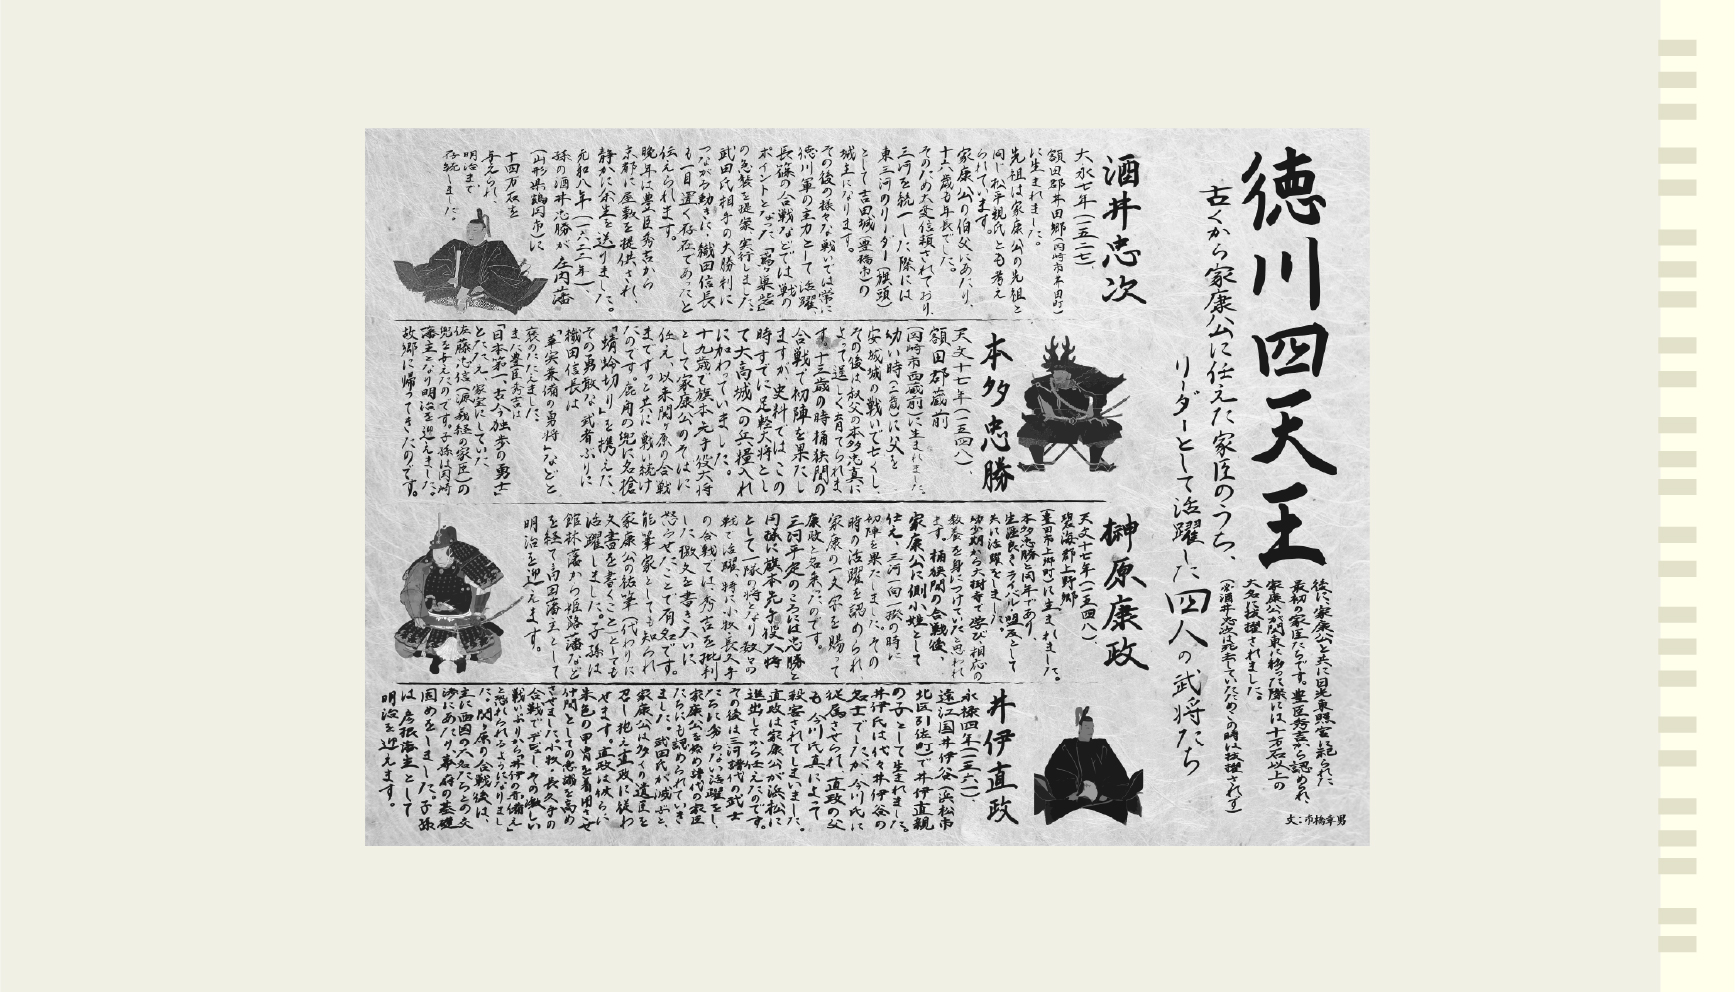 徳川四天王
古くから家康公に仕えた家臣のうち、
リーダーとして活躍した四人の武将たち
後に家康公と共に日光東照宮に祀られた
最初の家臣たちです。豊臣秀吉から認められ、
家康公が関東に移った際には十万石以上の
大名に抜擢されました。
(酒井忠次は死去していたためこの時は抜擢されず)
文:市橋章男
酒井忠次
大永七年(一五二七)、
額田郡井田郷(岡崎市井田町)
に生まれました。
先祖は家康公の先祖と
同じ松平親氏とも考え
られています。
家康公の伯父にあたり、
十五歳も年長でした。
そのため大変信頼されており、
三河を統一した際には
東三河のリーダー(旗頭)
として吉田城(豊橋市)の
城主になります。
その後の様々な戦いでは常に
徳川軍の主力として活躍、
長篠の合戦などでは戦の
ポイントとなった「鳶ヶ巣砦」
の急襲を提案、実行しました。
武田氏相手の大勝利に
つながる動きに、織田信長
も一目置く存在であったと
伝えられます。
晩年は豊臣秀吉から
京都に屋敷を提供され、
静かに余生を送りました。
元和八年(一六二二年)
孫の酒井忠勝が庄内藩
(山形県鶴岡市)に
十四万石を
与えられ、
明治まで
存続しました。
本多忠勝
天文十七年(一五四八)、
額田郡蔵前
(岡崎市西蔵前)に生まれました。
幼い時(二歳)に父を
安城城の戦いで亡くし、
その後は叔父の本多忠真に
よって逞しく育てられま
す。十三歳の時桶狭間の
合戦で初陣を果たし
ますが、史料ではこの
時すでに足軽大将とし
て大高城への兵糧入れ
に加わっていました。
十九歳で旗本先手役大将
として家康公のそばに
仕え、以来関ヶ原の合戦
まで、ずっと共に戦い続け
たのです。鹿角の兜に名槍
「蜻蛉切り」を携えた、
その勇敢な武者ぶりに
織田信長は
「華実兼備の勇将」などと
褒めたたえました。
また豊臣秀吉は
「日本第一、古今独歩の勇士」
とたたえ、家宝にしていた
佐藤忠信(源義経の家臣)の
兜を与えたのです。子孫は岡崎
藩主となり明治を迎えました。
故郷に帰ってきたのです。
榊原康政
天文十七年(一五四八)、
碧海郡上野郷
(豊田市上郷町)に生まれました。
本多忠勝と同年であり、
生涯良きライバル・盟友として
共に活躍をしました。
幼少期から大樹寺で学び相応の
教養を身につけていたと思われ
ます。桶狭間の合戦後、
家康公に側小姓として
仕え、三河一向一揆の時に
初陣を果たしました。その
時の活躍を認められ、
家康の一文字を賜って
康政と名乗ったのです。
三河平定のころには忠勝と
同様に旗本先手役大将
として一隊の将となり、数々の
戦で活躍、特に小牧・長久手
の合戦では、秀吉を批判
した檄文を書き大いに
怒らせたことで有名です。
能筆家としても知られ
家康公の祐筆(代わりに
文書を書くこと)としても
活躍しました。子孫は
館林藩から姫路藩など
を経て高田藩主として
明治を迎えます。
井伊直政
永禄四年(一五六一)
遠江国井伊谷(浜松市
北区引佐町)で井伊直親
の子として生まれました。
井伊氏は代々井伊谷の
名士でしたが、今川氏に
従属させられ、直政の父
も今川氏真によって
殺害されてしまいました。
直政は家康公が浜松に
進出してから仕えたのです。
その後は三河譜代の武士
たちに劣らない活躍をし、
家康公を始め譜代の家臣
たちにも認められていき
ました。武田氏が滅ぶと、
家康公は多くの遺臣を
召し抱え直政に従わ
せます。直政は彼らに
朱色の甲冑を着用させ
仲間としての意識を高め
させました。小牧・長久手の
合戦でデビュー、その激しい
戦いぶりから「井伊の赤備え」
と恐れられるようになりまし
た。関ヶ原の合戦後は、
主に西国の大名たちとの交
渉にあたり、幕府の基礎
固めをしました。子孫
は彦根藩主として
明治を迎えます。